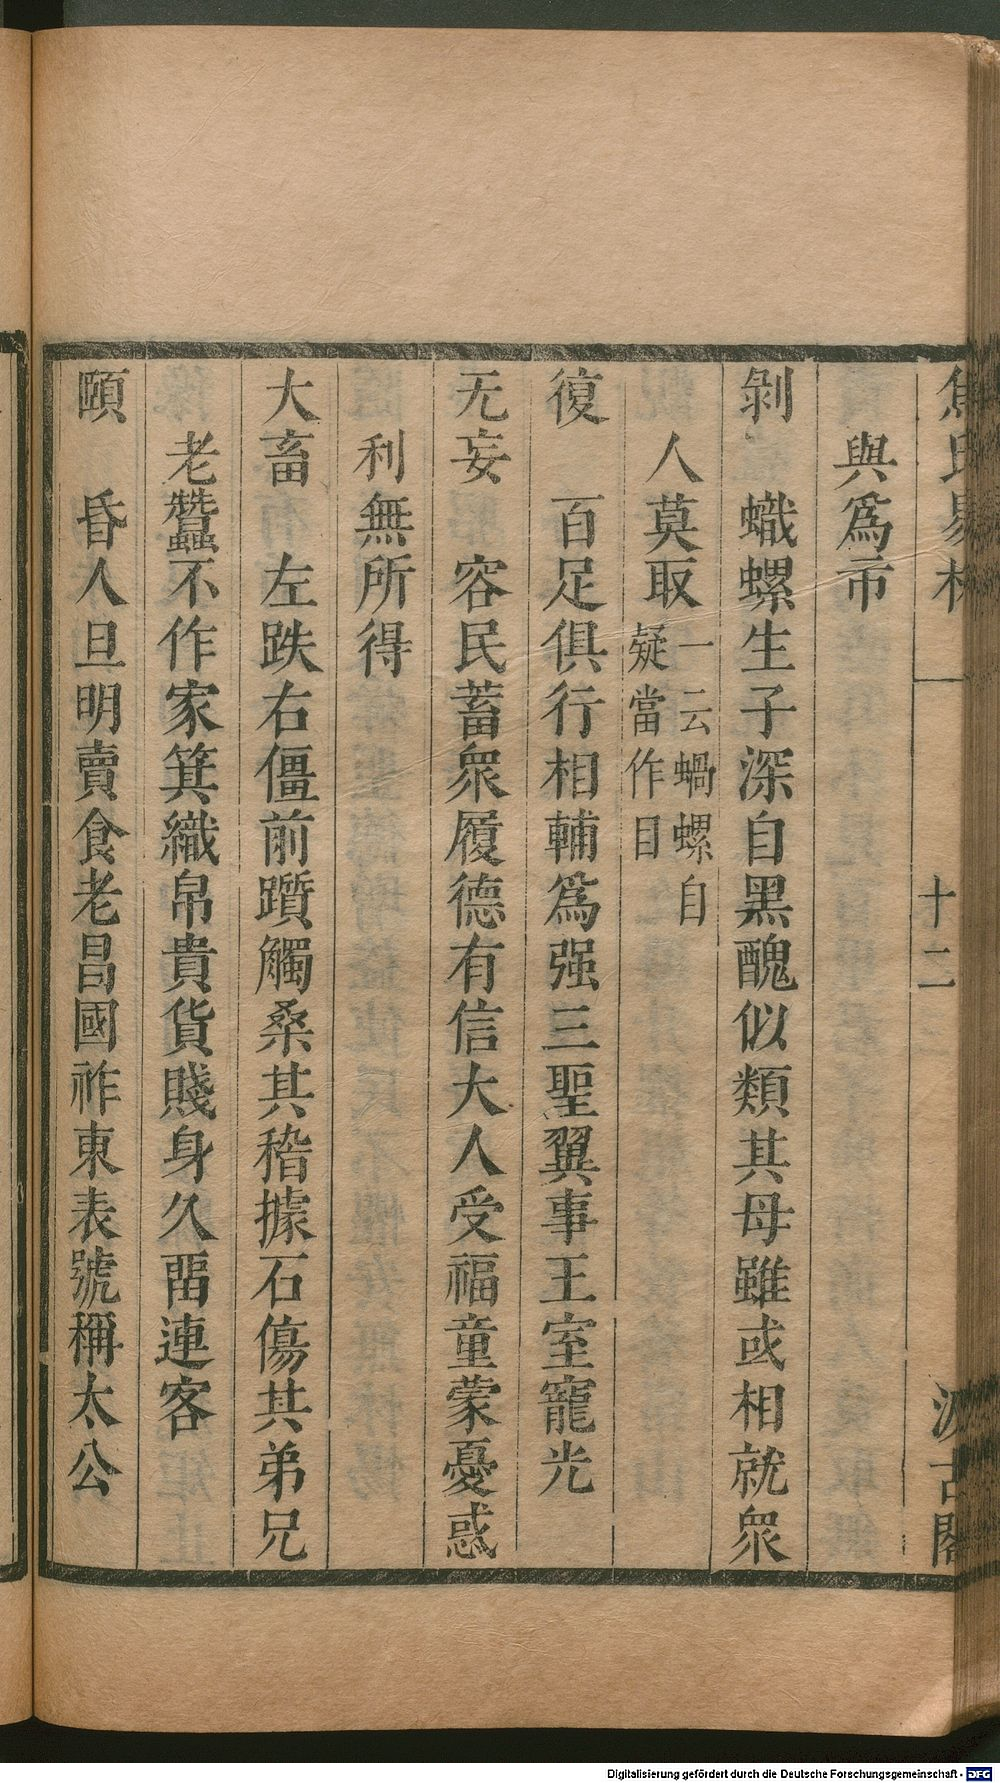 焦氏易林 十二 汲古閣
與為市
剝 蠘螺生子深自黑醜似類其母雖或相就衆
人莫取 一云蝸螺自疑當作目
復 百足俱行相輔為强三聖翼事王室寵光
无妄 容民蓄衆履德有信大人受福童蒙憂惑
利無所得
大畜 左跌右僵前躓觸桑其稽據石傷其弟兄
老蠶不作家箕織帛貴貨賤身久畱連客
頤 昏人旦明賣食老昌國祚東表號稱太公
Digitalisierung gefördert durch die Deutsche Forschungsgemeinschaft - DFG